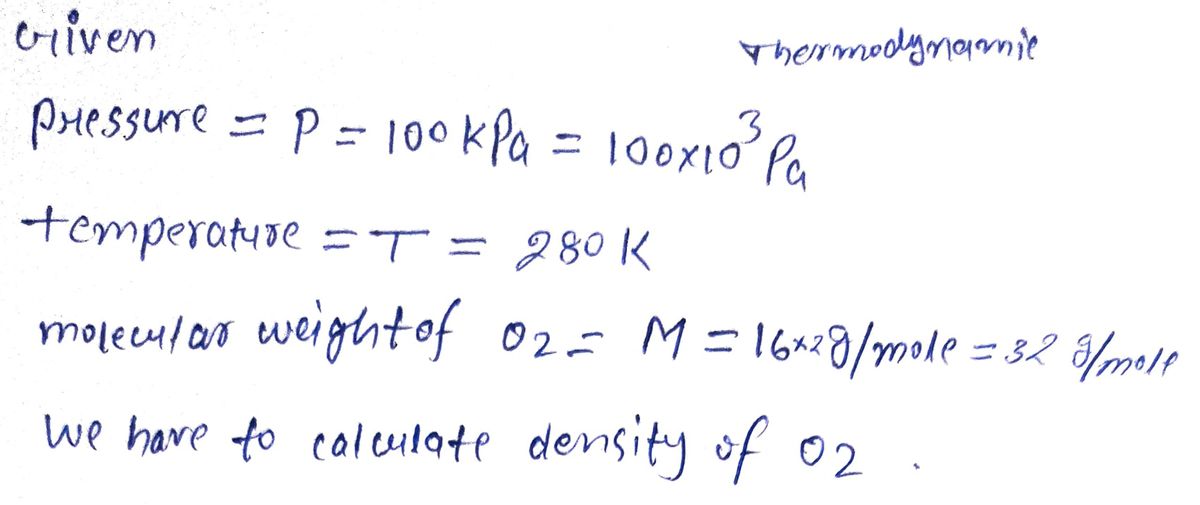 Given
Thermodynamic
Pressure = P = 100 kPa = 100x10³ Pa
temperature = T = 280 K
molecular weight of O2 = M = 16x2g/mole = 32 g/mole
We have to calculate density of O2 .